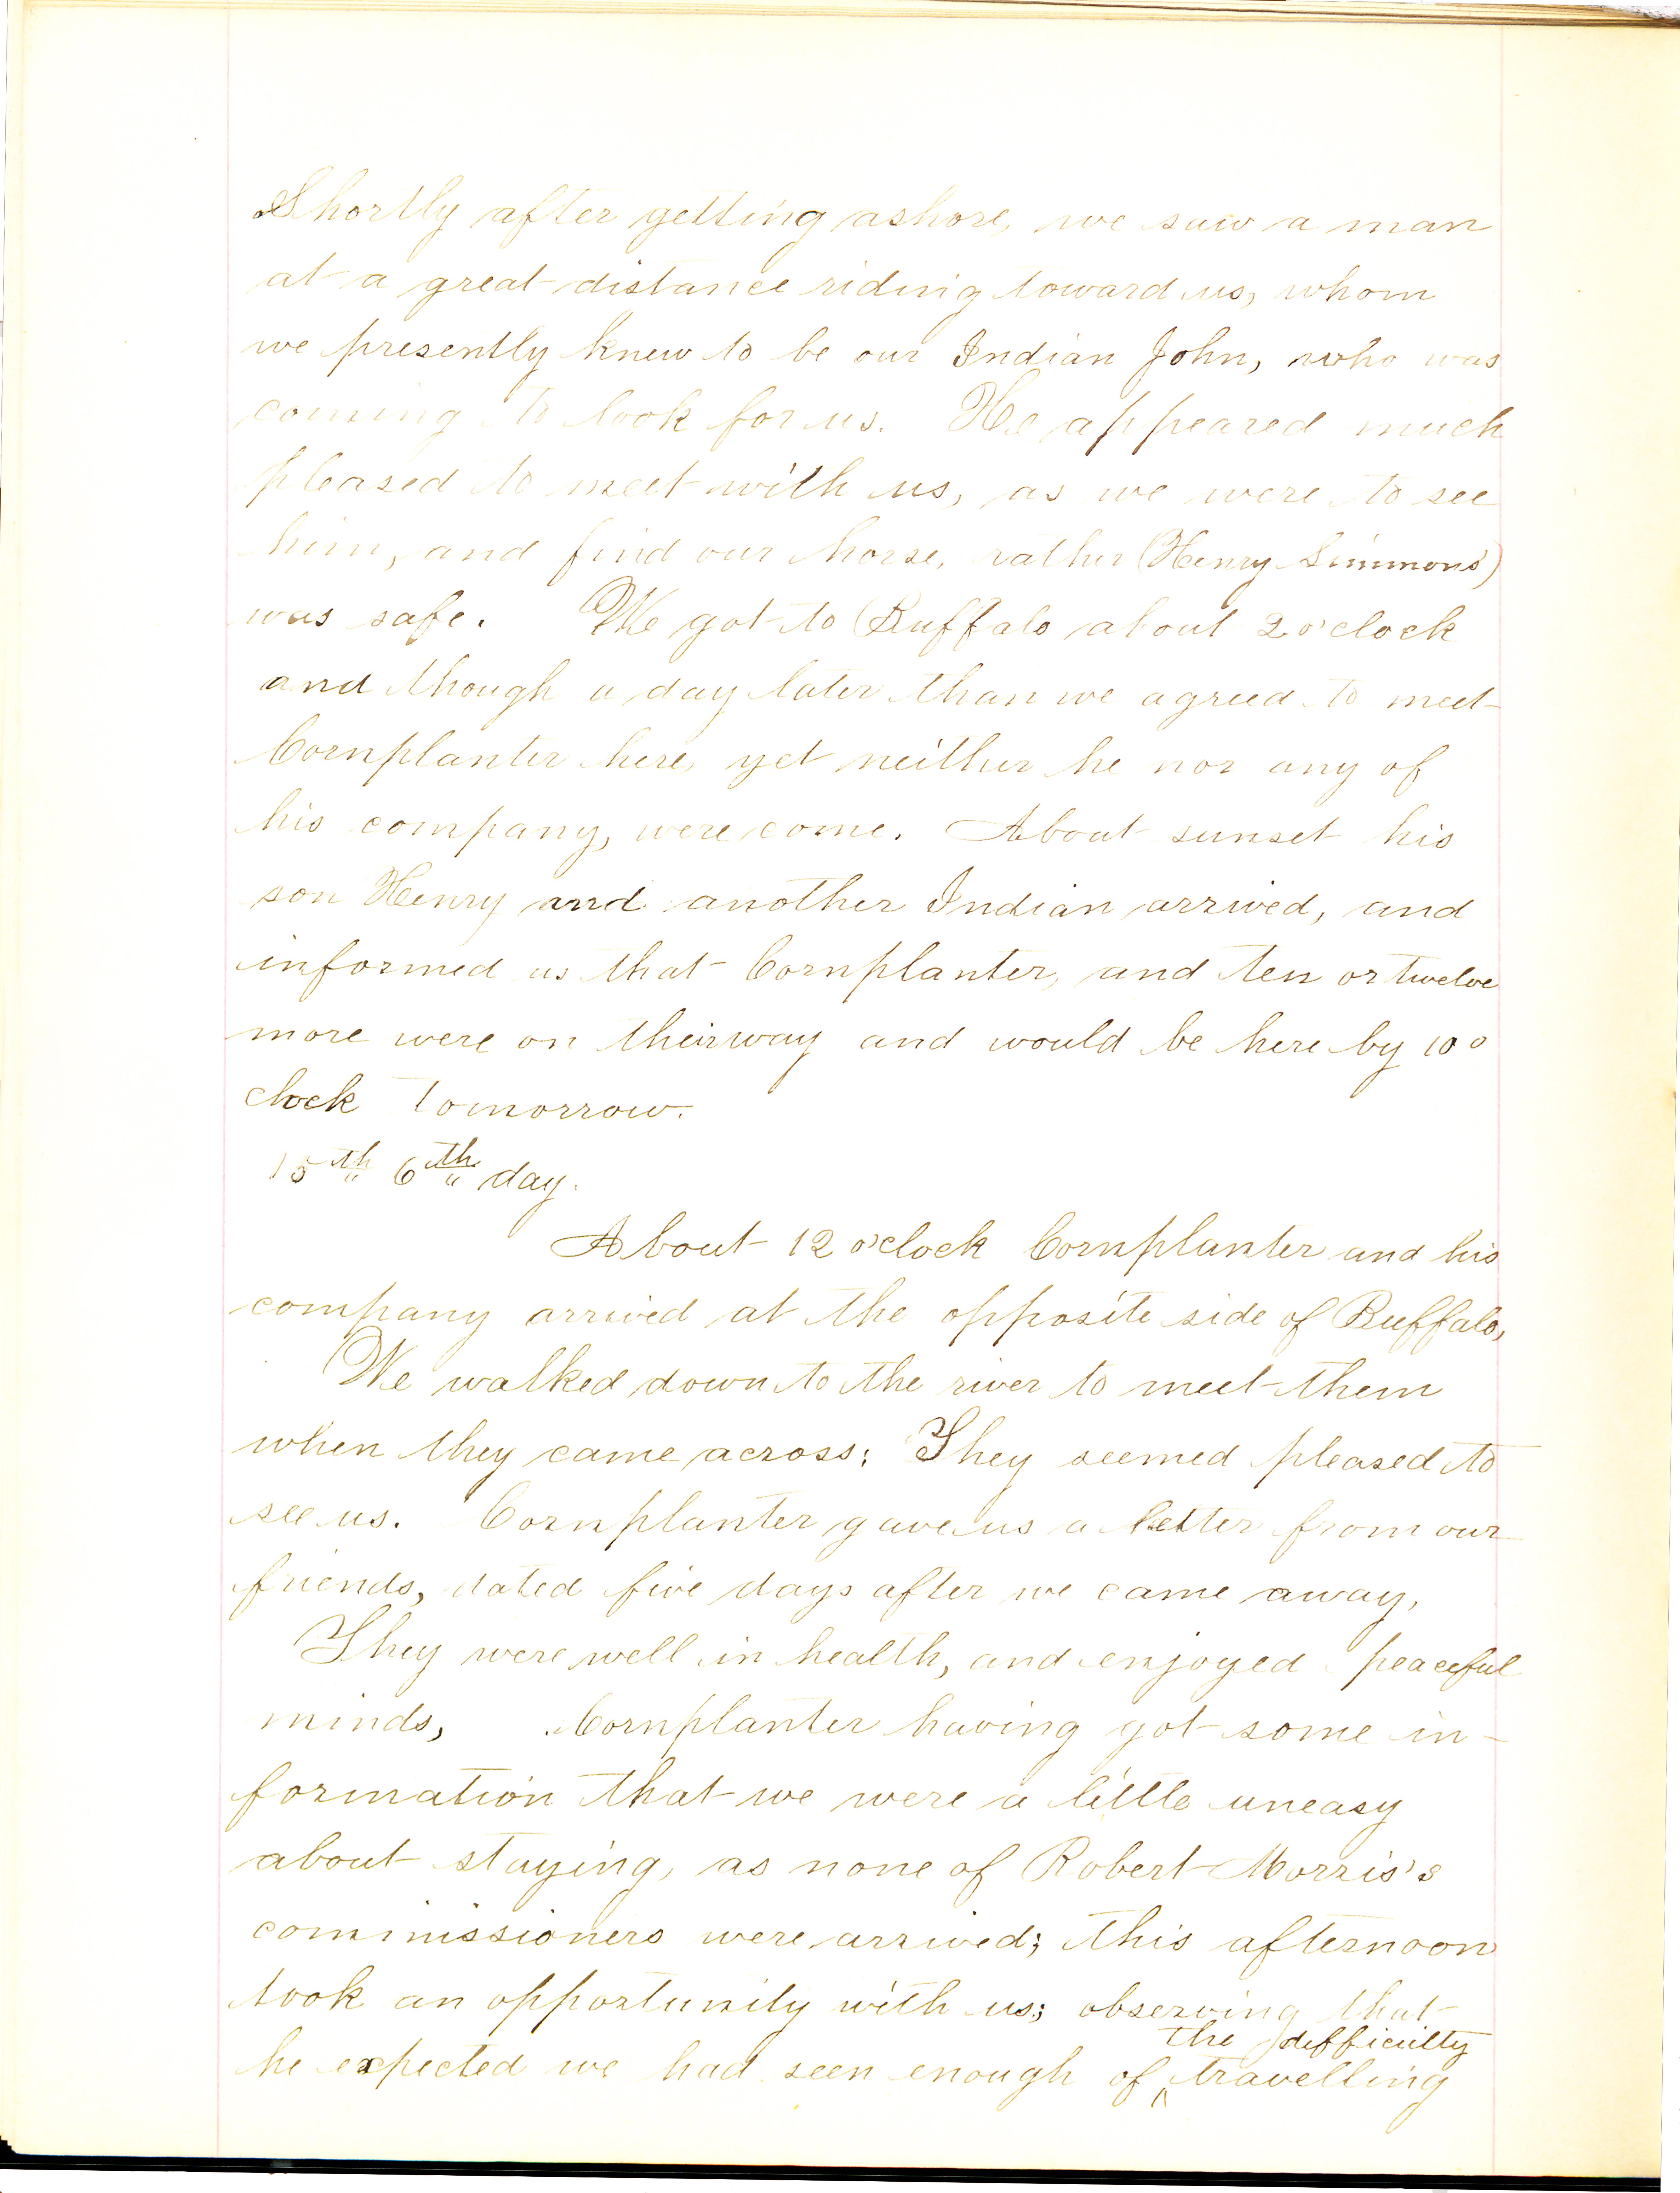 Shortly after getting ashore, we saw a man
at a great distance riding toward us, whom
we presently knew to be our Indian John, who was
coming to look for us. He appeared much
pleased to meet with us, as we were to see
him, and find our horse, rather (Henry Simmons')
was safe. We got to Buffalo about 2 o'clock
and though a day later than we agreed to meet
Cornplanter here, yet neither he nor any of
his company, were come. About sunset his
son Henry and another Indian arrived, and
informed us that Cornplanter, and ten or twelve
more were on their way and would be here by 10 o
clock tomorrow.
15th 6th day.
About 12 o'clock Cornplanter and his
company arrived at the opposite side of Buffalo,
We walked down to the river to meet them
when they came across; They seemed pleased to
see us. Cornplanter gave us a letter from our
friends, dated five days after we came away,
They were well in health, and enjoyed peaceful
minds, Cornplanter having got some in-
formation that we were a little uneasy
about staying, as none of Robert Morris's
commissioners were arrived; this afternoon
took an opportunity with us; observing that
the difficulty
he expected we had seen enough of ^ travelling